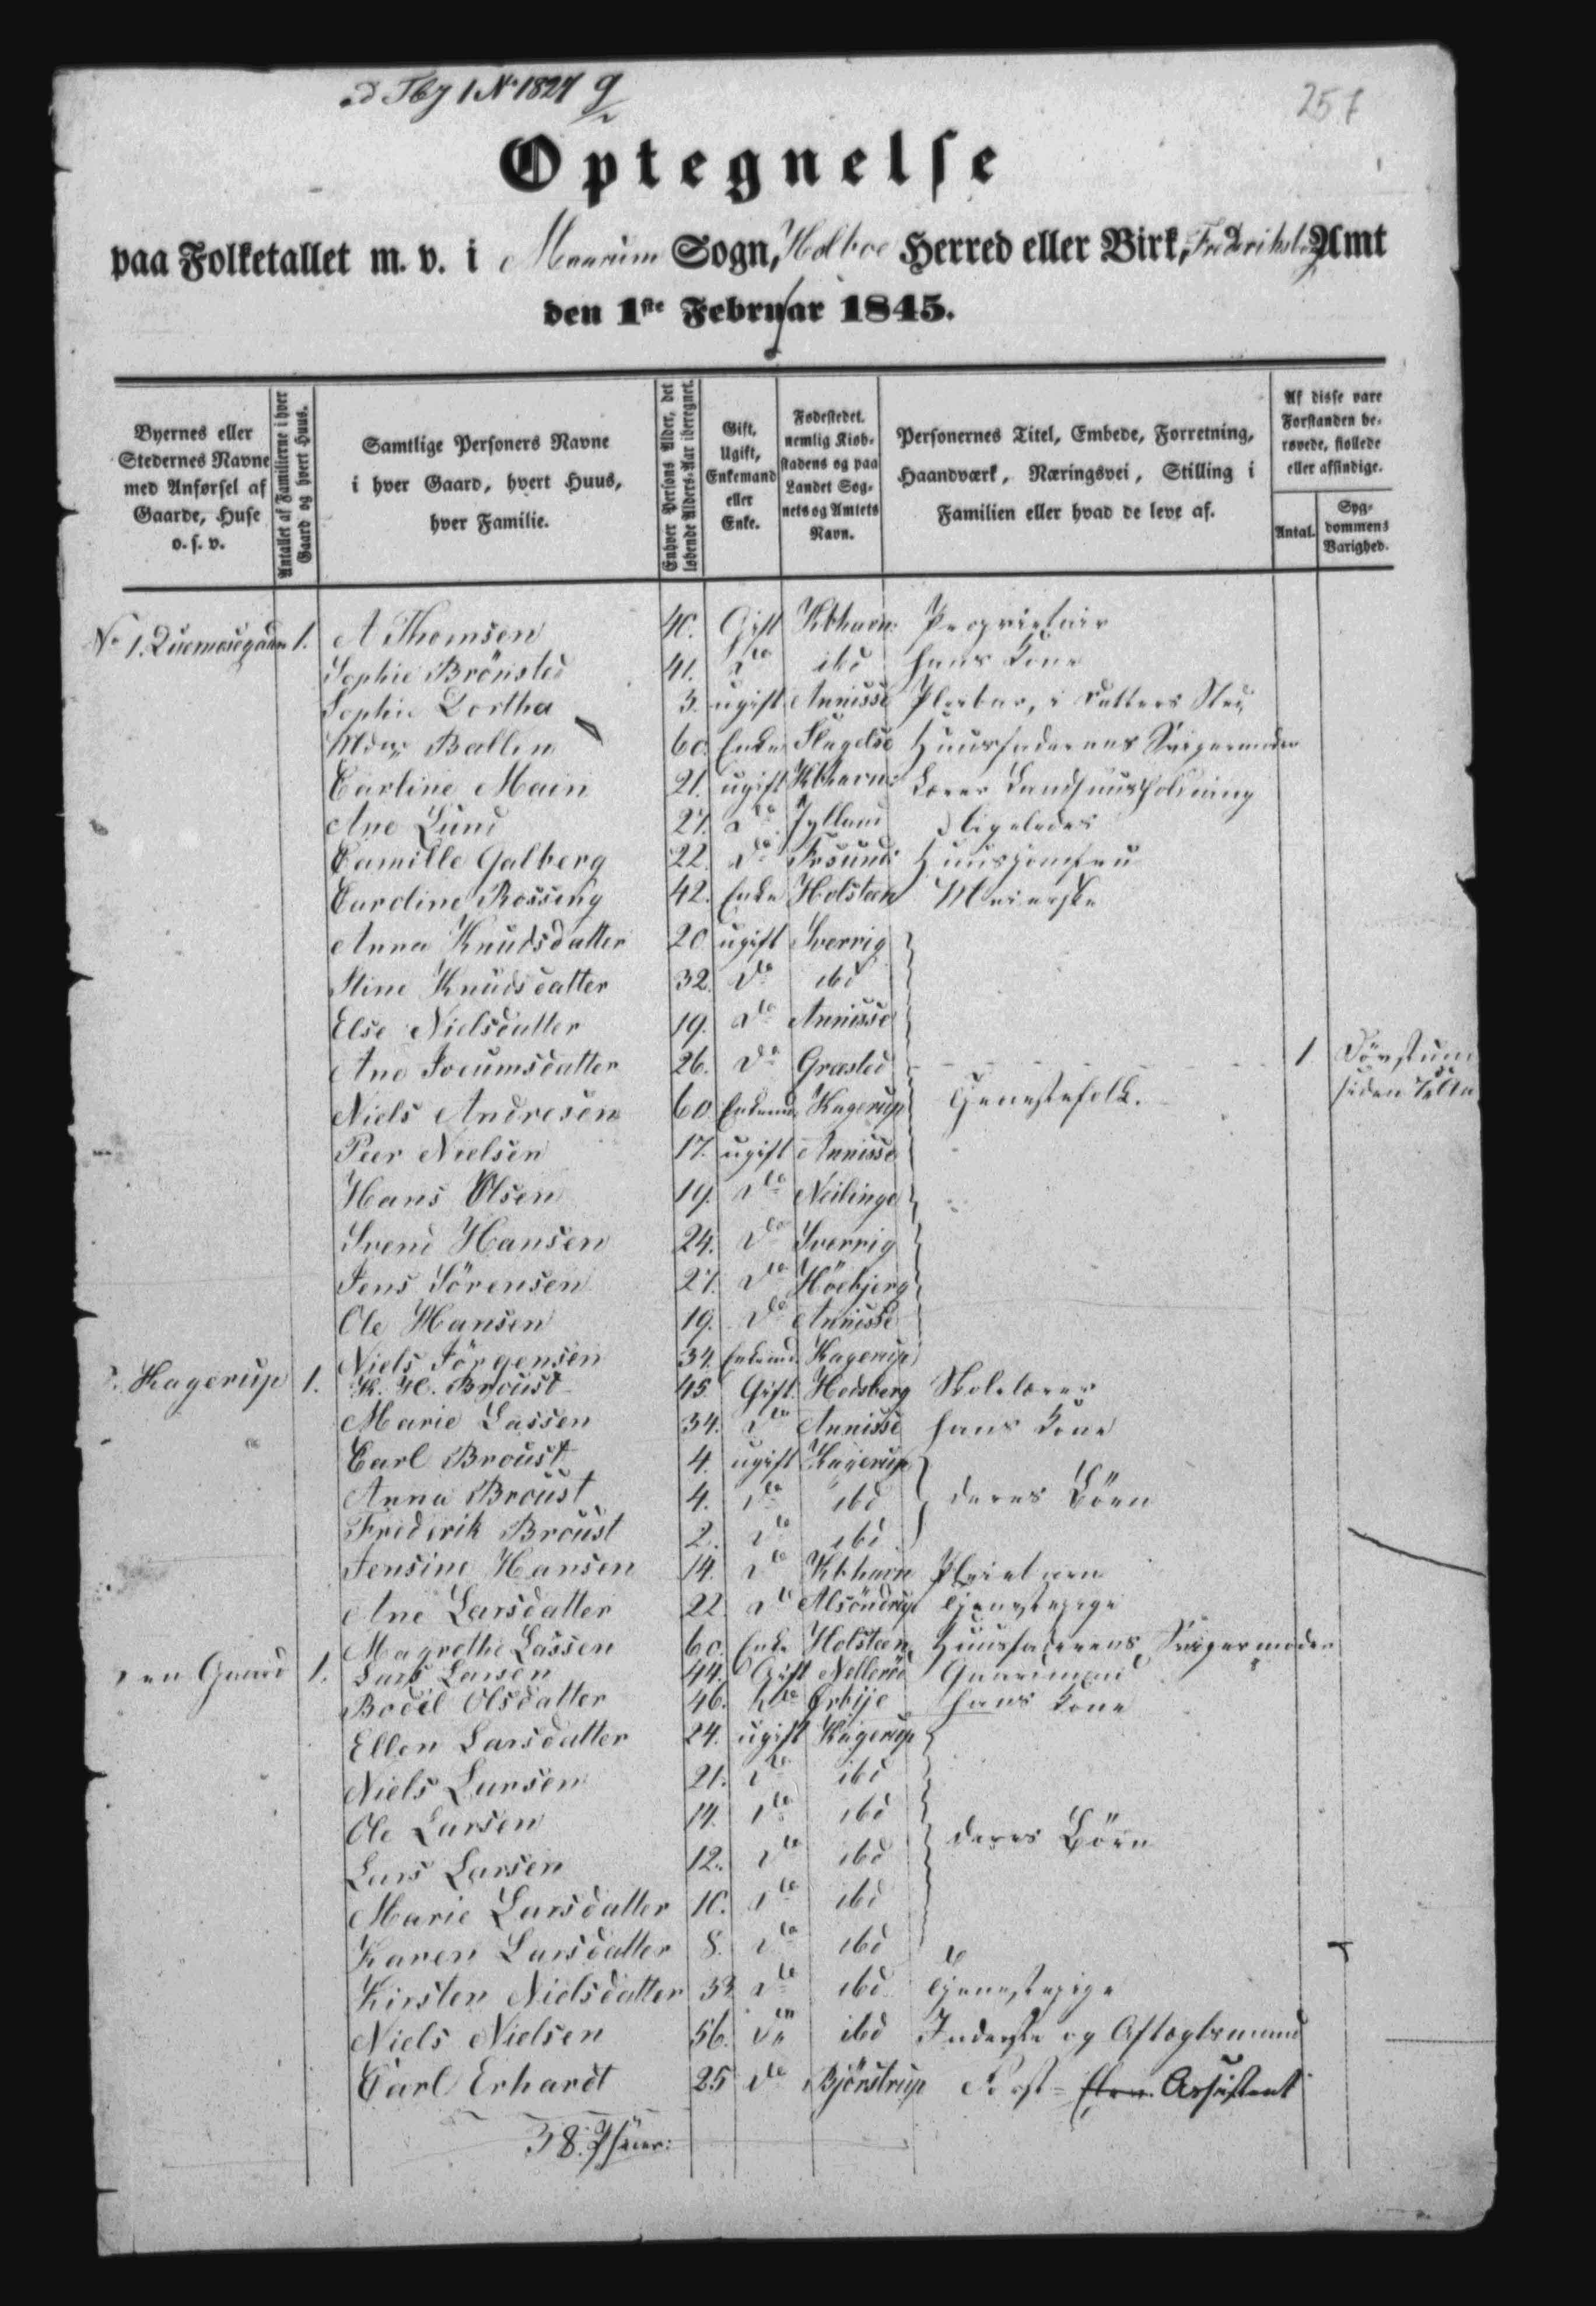 ad Tby 1 No 1827 g
Optegnelse
paa Folketallet m. v. i Maarum Sogn, Holboe Herred eller Birk, Frederiksborg Amt
den 1ste Februar 1845.
Byernes eller Stedernes Navne med Anførsel af Gaarde, Huse o. s. v.
Antallet af Familierne i hver Gaard og hvert Huus.
Samtlige Personers Navne i hver Gaard, hvert Huus, hver Familie.
Enhver Persons Alder, det løbende Alders-Aar iberegnet.
Gift, Ugift, Enkemand eller Enke.
Fødestedet, nemlig Kiøbstadens og paa Landet Sognets og Amtets Navn.
Personernes Titel, Embede, Forretning, Haandværk, Næringsvei, Stilling i Familien eller hvad de leve af.
Af disse vare Forstanden berøvede, fiollede eller afsindige.
Antal.
Sygdommens Varighed.
No 1. Duemosegaard 1. A Thomsen 40. Gift Kbhavn Proprietair
Sophie Brönsted 41. do ibd hans Kone
Sophie Dorthea 3. ugift Annisse Pleiebarn, i Datters Sted
Mdm Ballin 60. Enke Slagelse Huusfaderens Svigermoder
Carline Main 21. ugift Kbhavn Lærer Landhuusholdning
Ane Lund 27. do Jylland Ligeledes
Camille Galberg 22. do Frsund Huusjomfru
Caroline Rossing 42. Enke Holsteen Meierske
Anna Knudsdatter 20 ugift Sverrig
Stine Knudsdatter 32. do ibd
Else Nielsdatter 19. do Annisse
Ane Joeumsdatter 26. do Græsted 1 Døvstum
Niels Andresen 60 Enkemd Kagerup Tjenestefolk. siden
Peer Nielsen 17. ugift Annisse
Hans Olsen 19. do Neilinge
Svend Hansen 24. do Sverrig
Jens Sörensen 27. do Höebjerg
Ole Hansen 19. do Annisse
Niels Jörgensen 34. Enkemd. Kagerup
Kagerup 1. K. H. Broust 45. Gift. Hodsberg Skolelærer
Marie Lassen 34. do Annisse hans Kone
Carl Broust 4. ugift Kagerup
Anna Broust 4. do ibd deres Börn
Frederik Broust 2. do ibd
Jensine Hansen 14. do Kbhavn Pleiebarn
Ane Larsdatter 22. do Alsöndrup Tjenestepige
Magrethe Lassen 60. Enke Holsteen Huusfaderens Svigermoder
en Gaard 1. Lars Larsen 44. Gift Nellerød Gaardmand
Bodil Olsdatter 46. do Ørbije hans Kone
Ellen Larsdatter 24. ugift Kagerup
Niels Larsen 21. do ibd
Ole Larsen 14. do ibd
Lars Larsen 12. do ibd deres Börn
Marie Larsdatter 10. do ibd
Karen Larsdatter 8. do ibd
Kirsten Nielsdatter 33 do ibd Tjenestepige
Niels Nielsen 56. do ibd Inderste og Aftægtsmand
Carl Erhardt 25 do Bjørstrup Forst- Assistent
38.